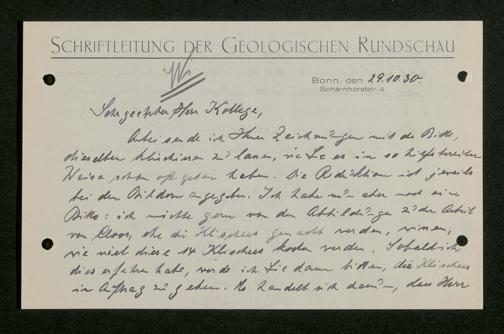 SCHRIFTLEITUNG DER GEOLOGISCHEN RUNDSCHAU
Bonn, den 29.10.30.
Scharnhorststr. 4
Sehr geehrter Herr Kollege,
Anbei sende ich Ihnen Zeichnungen mit der Bitte,
dieselben klischieren zu lassen, wie Sie es in so hilfsbereiter
Weise schon oft getan haben. Die Reduktion ist jeweils
bei den Bildern angegeben. Ich habe nun aber noch eine
Bitte: ich möchte gern von den Abbildungen zu der Arbeit
von Cloos, ehe die Klischees gemacht werden, wissen,
wie viel diese 14 Klischees kosten werden. Sobald ich
dies erfahren habe, werde ich Sie dann bitten, die Klischees
in Auftrag zu geben. Es handelt sich darum, dass Herr